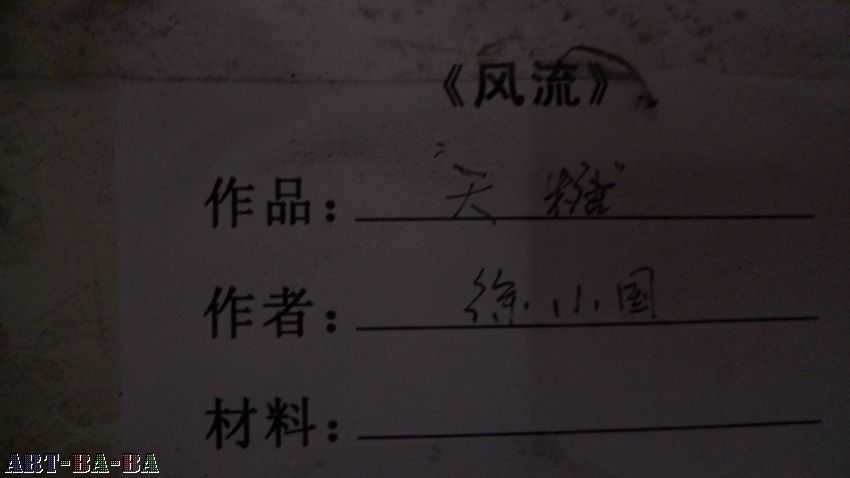 《风流》
作品：“天糖”
作者：徐小国
材料：
ART-BA-BA